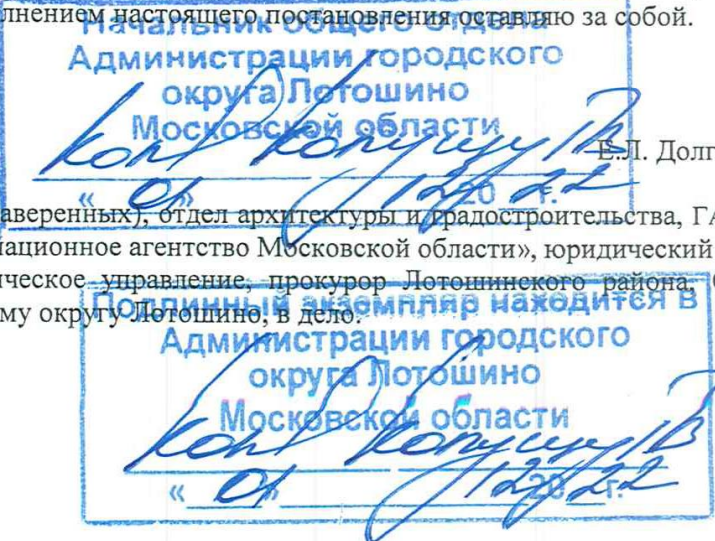 лнением настоящего постановления оставляю за собой.
Начальник общего отдела
Администрации городского
округа Лотошино
Московской области
Е.Л. Долг
« 01 » 12 20 22 г.
аверенных), отдел архитектуры и градостроительства, ГА
мационное агентство Московской области», юридический
ическое управление, прокурор Лотошинского района,
му округу Лотошино, в дело.
Подлинный экземпляр находится в
Администрации городского
округа Лотошино
Московской области
« 01 » 12 20 22 г.